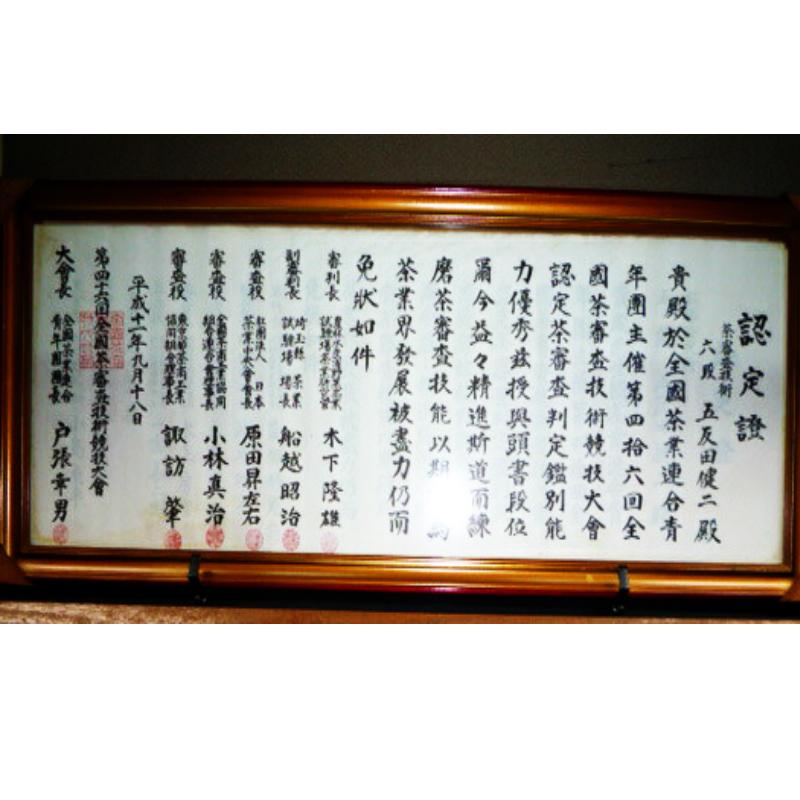 認定證
茶審査技術
六段 五反田健二殿
貴殿於全國茶業連合青
年團主催第四拾六回全
國茶審査技術競技大會
認定茶審査判定鑑別能
力優秀茲授與頭書段位
爾今益々精進斯道而練
磨茶審査技能以期
茶業界發展被盡力仍而
免狀如件
審判長 木下隆雄
副審判長 埼玉縣茶業試驗場場長 船越昭治
審査役 社團法人日本茶業中央會會長 原田昇左右
審査役 小林真治
審査役 諏訪肇
平成十一年九月十八日
第四十六回全國茶審査技術競技大會
大會長 全國茶業連合青年團團長 戸張幸男